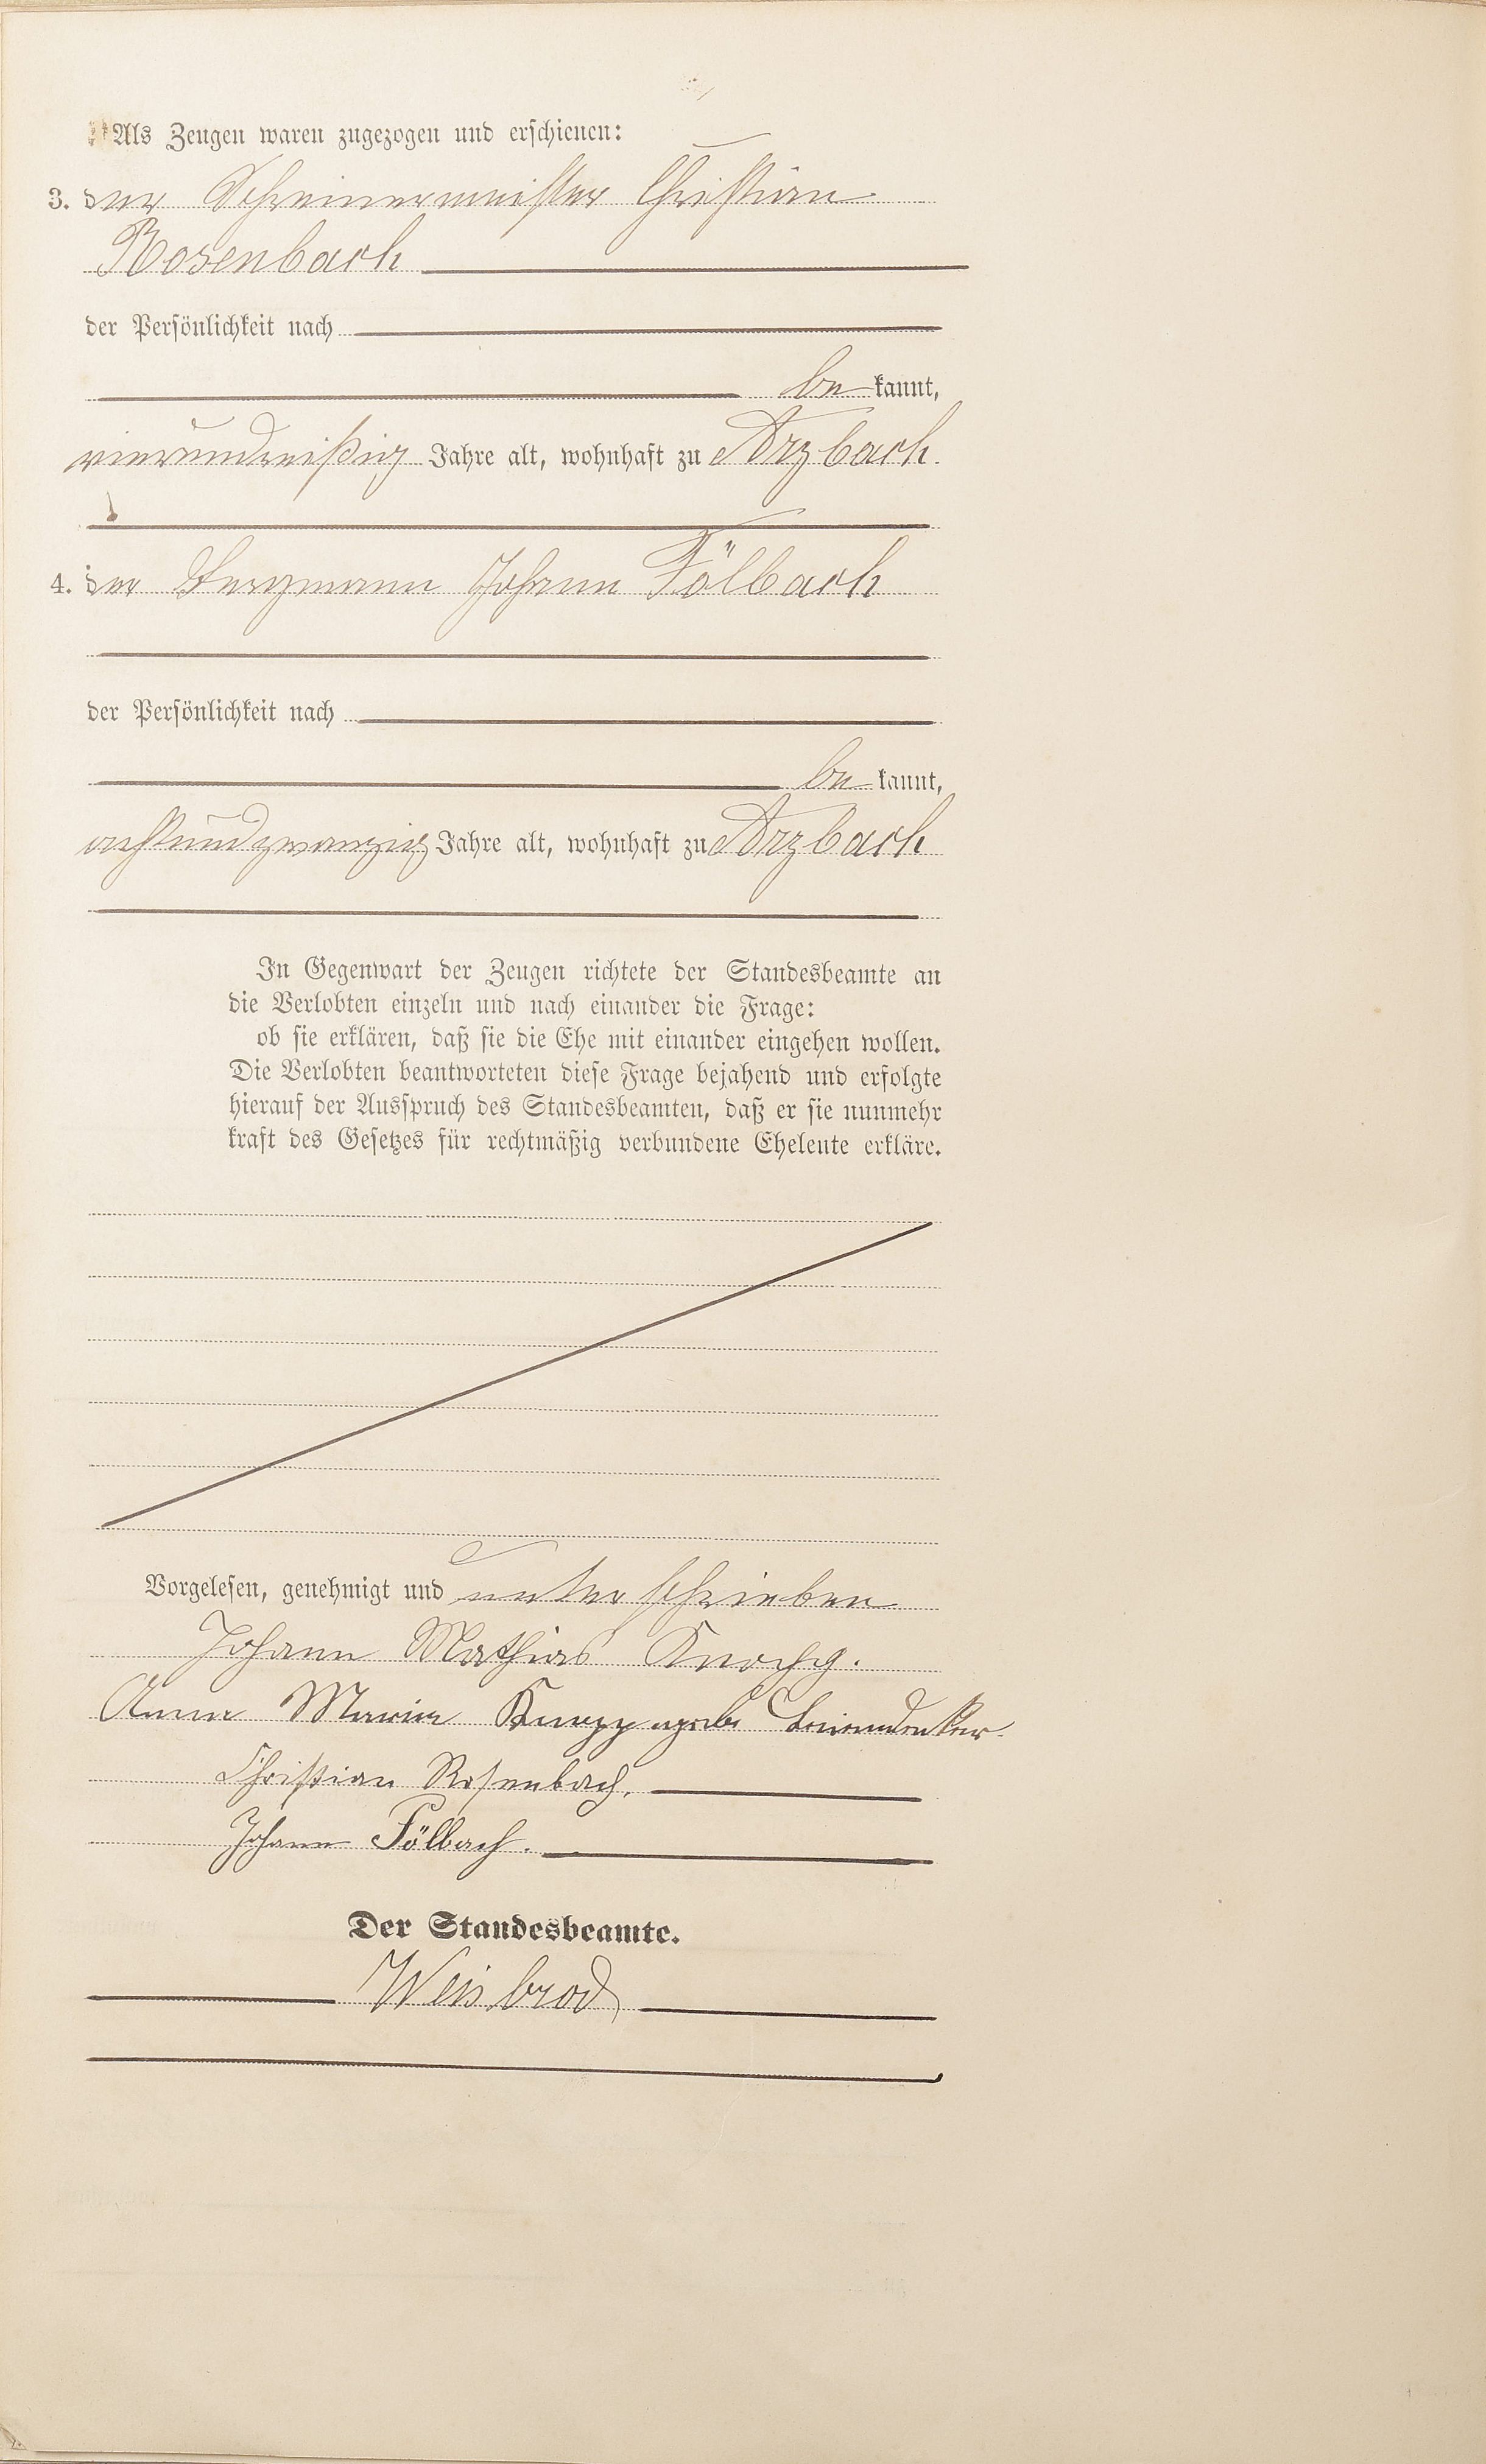 Als Zeugen waren zugezogen und erschienen:
3. der Schreinermeister Christian
Rosenbach
der Persönlichkeit nach
be kannt,
vierunddreißig Jahre alt, wohnhaft zu Arzbach
4. der Bergmann Johann Fölbach
der Persönlichkeit nach
be kannt,
achtundzwanzig Jahre alt, wohnhaft zu Arzbach
In Gegenwart der Zeugen richtete der Standesbeamte an
die Verlobten einzeln und nach einander die Frage:
ob sie erklären, daß sie die Ehe mit einander eingehen wollen.
Die Verlobten beantworteten diese Frage bejahend und erfolgte
hierauf der Ausspruch des Standesbeamten, daß er sie nunmehr
kraft des Gesetzes für rechtmäßig verbundene Eheleute erkläre.
Vorgelesen, genehmigt und unterschrieben
Johann Mathias
Anna Maria
Christian Rosenbach.
Johann Fölbach.
Der Standesbeamte.
Weisbrod